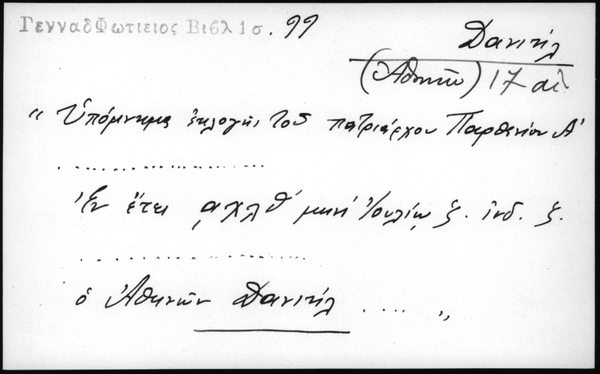 ΓενναδΦωτιειος Βιβλ 1σ. 99
Δανιήλ
(Ἀθηνῶν) 17 αἰ
“ Ὑπόμνημα ἐκλογῆς τοῦ πατριάρχου Παρθενίου Α'
..................
Ἐν ἔτει ͵αχλθ' μηνὶ Ἰουλίῳ ζ. ἰνδ. ζ.
..................
ὁ Ἀθηνῶν Δανιήλ .... „